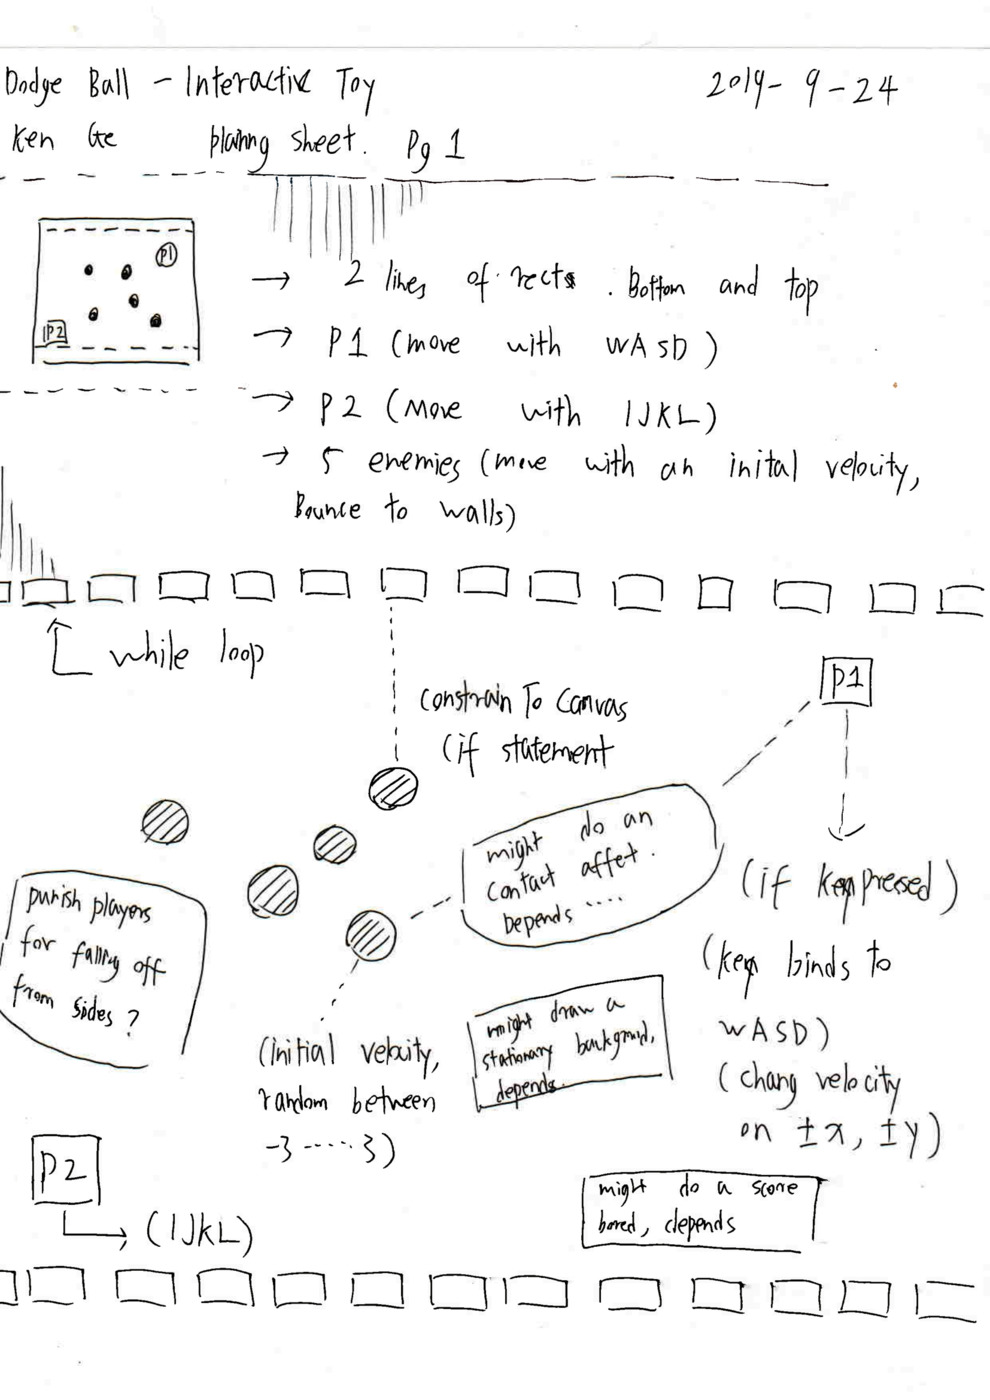 Dodge Ball - Interactive Toy
2019-9-24
Ken Ge planng sheet. Pg 1
P1
P2
→ 2 lines of rects. Bottom and top
→ P1 (move with WASD)
→ P2 (Move with IJKL)
→ 5 enemies (move with an inital velocity,
Bounce to walls)
while loop
P1
Constrain To Canvas
(if statement
might do an
contact affet.
Depends ....
(if keypressed)
(key binds to
WASD)
(chang velocity
on ±x, ±y)
punish players
for falling off
from sides?
might draw a
stationary backgroud,
depends.
(initial velocity,
random between
-3 ..... 3)
P2
(IJKL)
might do a score
bored, depends